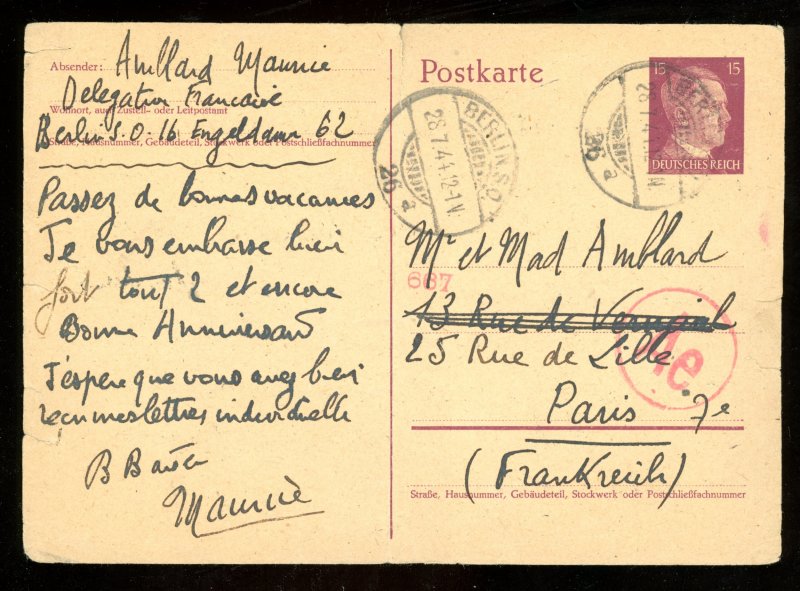 Absender: Amblard Maurice
Delegation Francaise
Wohnort, auch Zustell- oder Leitpostamt
Berlin S.O. 16 Engeldamm 62
Straße, Hausnummer, Gebäudeteil, Stockwerk oder Postschließfachnummer
Passez de bonnes vacances
Je vous embrasse bien
fort tout 2 et encore
Bonne Anniversaire
J'espere que vous avez bien
recu mes lettres individuelle
Maurice
Postkarte
15 15
DEUTSCHES REICH
BERLIN SO
28.7.44.12-1 N
26 a
26 a
Mr et Mad Amblard
667
13 Rue de
25 Rue de Lille
Ae
Paris 7e
(Frankreich)
Straße, Hausnummer, Gebäudeteil, Stockwerk oder Postschließfachnummer